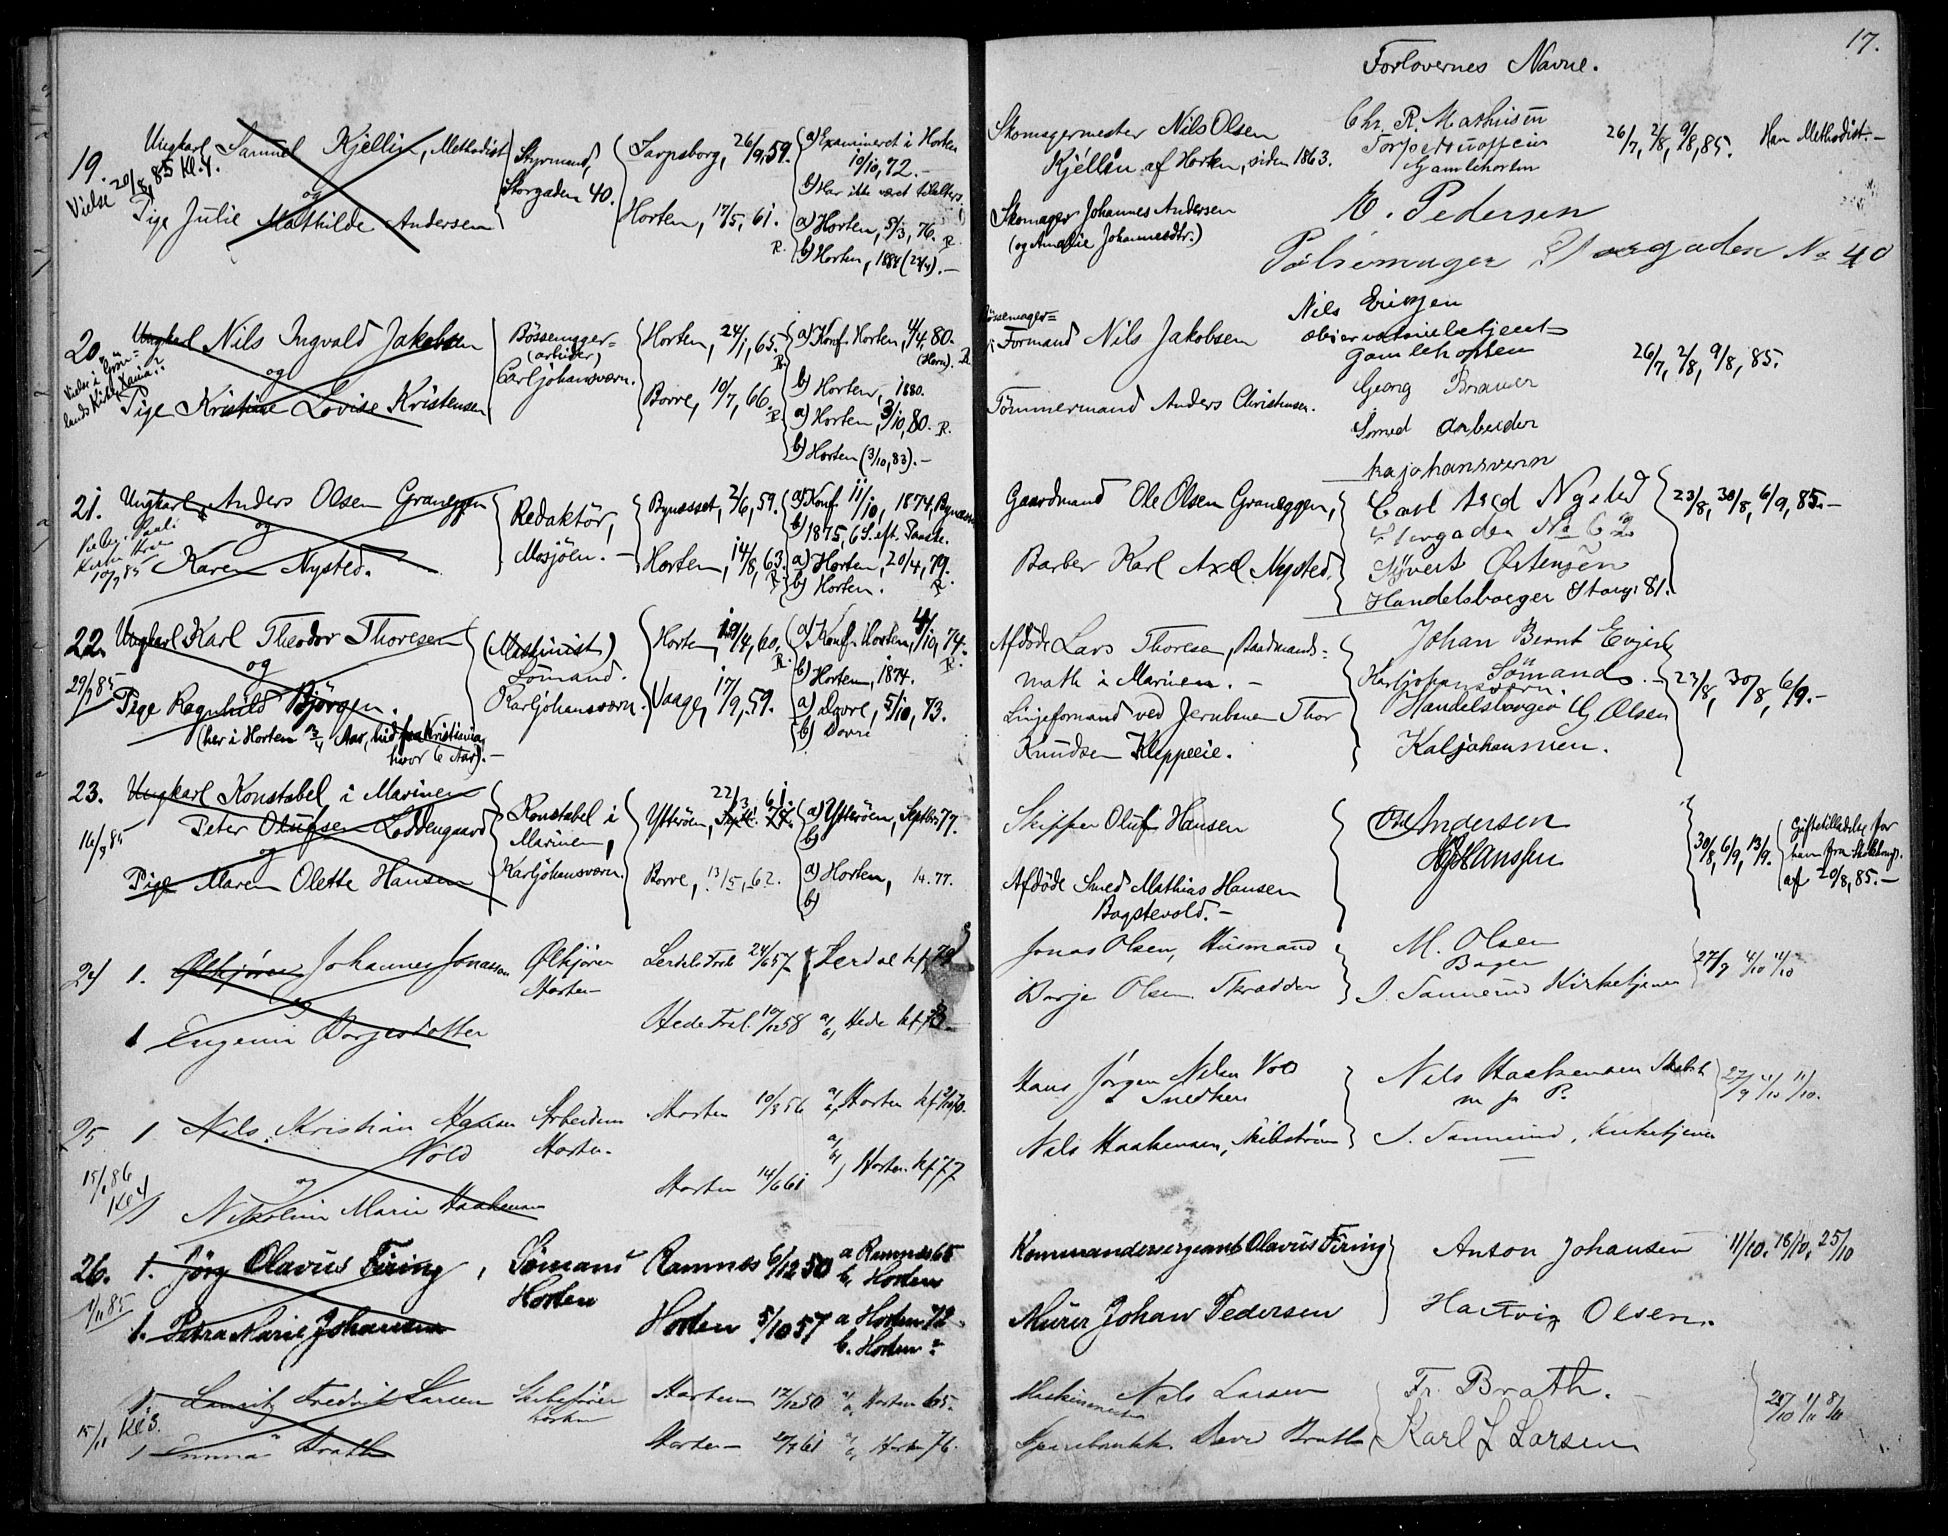 17.
Forlovernes Navne.
19. Ungkarl Samuel Kjellin, Methodist
Vielse 20/8, 85 Kl. 4.
og
Pige Julie Mathilde Andersen
Styrmand,
Storgaden 40.
Sarpsborg, 26/9, 59.
Horten, 17/5, 61.
R.
a) Examineret i Horten
10/10, 72.-
b) Har ikke været tilalters
a) Horten, 5/3, 76. R.
b) Horten, 1884 (24/4).-
Skomagermester Nils Olsen
Kjellin af Horten, siden 1863.
Skomager Johannes Andersen
(og Amalie Johannesdtr.)
Chr. R. Mathisen
Gamlehorten
E. Pedersen
Pølsemager Storgaden No 40
26/7, 2/8, 9/8, 85. Han Methodist.-
20. Ungkarl Nils Ingvald Jakobsen
og
Pige Kristine Lovise Kristensen
Bössemager=
(arbeider)
Carljohansværn.
Horten, 24/1, 65.
Borre, 10/7, 66.
a) Konf. Horten, 4/4, 80.
(Horn). R.
b) Horten, 1880.
a) Horten, 3/10, 80. R.
b) Horten (3/10, 83).-
Bössemager=
Formand Nils Jakobsen
Tömmermand Anders Christensen.
Nils
Gamlehorten
Georg Brauer
Smed Arbeider
26/7, 2/8, 9/8, 85.
21. Ungkarl Anders Olsen Graneggen
og
10/9 85 Karen Nysted.
Redaktör,
Mosjöen.-
Bynæsset, 2/6, 59.
Horten, 14/8, 63.
a) Konf. 11/10, 1874, Bynæsset
b) 1875, 6 S. eft. Paaske.
a) Horten, 20/4, 79.
b) Horten. R.
Gaardmand Ole Olsen Graneggen,
Barber Karl Axel Nysted.
Carl Axel Nysted
Storgaden No 62
Sivert Östensen
Handelsborger Storg. 81.
23/8, 30/8, 6/9, 85.-
22. Ungkarl Karl Theodor Thoresen
og
29/9 85
Pige Ragnhild Björgen.
(her i Horten 3/4 Aar, hid fra Kristiania,
hvor 6 Aar).-
(Maskinist)
Sömand.
Karljohansværn.
Horten, 19/4, 60.
R.
Vaage, 17/9, 59.
a) Konf. Horten, 4/10, 74.
R.
b) Horten, 1874.
a) Dovre, 5/10, 73.
b) Dovre
Afdöde Lars Thoresen, Baadmands=
math i Marinen.-
Linjeformand ved Jernbanen Thor
Knudsen Kleppeeie.
Johan Bernt
Sömand.-
Karljohansværn.
Handelsborger G. Olsen
23/8, 30/8, 6/9.-
23. Ungkarl Konstabel i Marinen
Peter Olufsen Loddengaard
16/9 85
og
Pige Maren Olette Hansen
Konstabel i
Marinen,
Karljohansværn.
22/3 61.
Ytteröen,
Borre, 13/5, 62.
a) Ytteröen, Septbr. 77.
b)
a) Horten, 14. 77.
b)
Skipper Oluf Hansen
Afdöde Smed Mathias Hansen
Bogstevold.-
Andersen
Hanssen
30/8, 6/9, 13/9.
Giftetilladelse for
ham fra
af 20/8, 85.-
24 1. Ölkjörer Johannes Jonassen
og
1 Eugenia Borgesdotter
Ölkjörer
Horten
24/6 57
Hede 10/12 58
a/b, Hede kf 73
Jonas Olsen, Husmand
Borje Olsen Skrædder
M. Olsen
Bager
J. Tannerud Kirketjener
27/9 4/10 11/10
25 1. Nils Kristian Hansen
Vold
15/1 86
Kl 4 og
1 Nikoline Marie Haakensen
Arbeider
Horten.
Horten 10/3 56
Horten 14/6 61
a/b, Horten kf 70.
a/b, Horten kf 77
Hans Jörgen Nilsen Vold
Snedker
Nils Haakensen, Skibstömm
Nils Haakensen
m p P.
J. Tannerud, Kirketjener
27/9 4/10 11/10.
26. 1. Jörg. Olavus Firing,
1/11 85
1. Petra Marie Johansen
Sömand
Horten
Ramnes 6/12 50
Horten 5/10 57
a Ramnes 65
b, Horten
a Horten 72
b. Horten
Kommandersergeant Olavus Firing
Murer Johan Pedersen
Anton Johansen
Hartvig Olsen.
11/10, 18/10, 25/10
1. Lauritz Fredrik Larsen
15/11 Kl 3.
1 Emma Brath
Skibsförer
Horten
Horten 12/12 50
Horten
a/b, Horten 65.
a/b, Horten 76.
Nils Larsen
Brath
Fr. Brath.-
Karl L Larsen
25/10 1/11 8/11